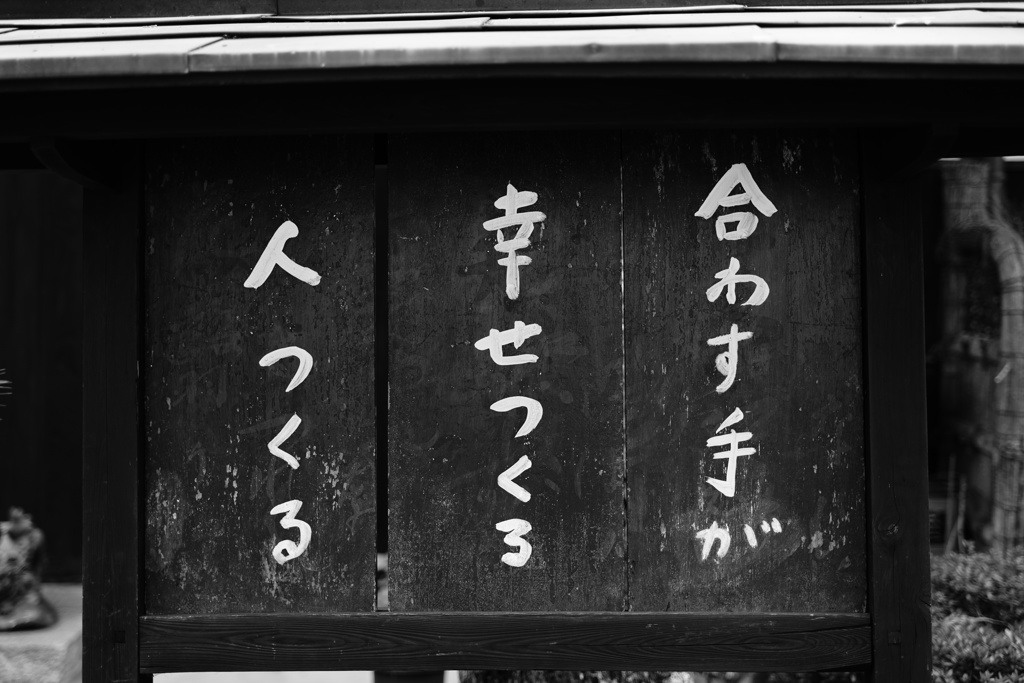 合わす手が
幸せつくる
人つくる